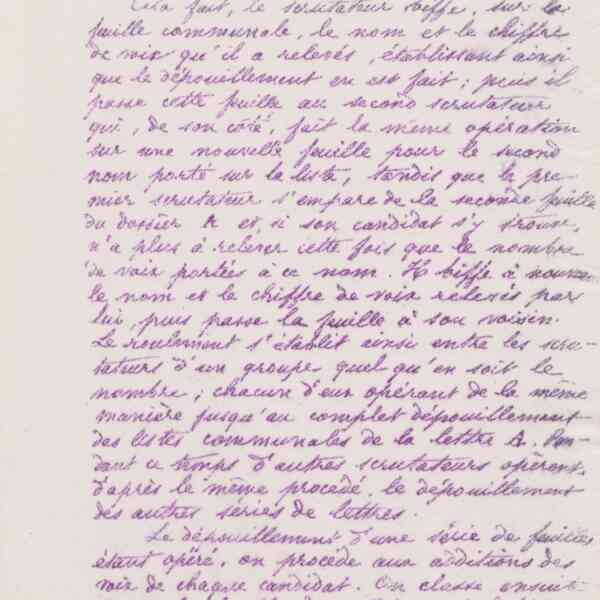 Cela fait, le scrutateur biffe, sur la
feuille communale, le nom et le chiffre
de voix qu'il a relevés, établissant ainsi
que le dépouillement en est fait ; puis il
passe cette feuille au second scrutateur
qui, de son côté, fait la même opération
sur une nouvelle feuille pour le second
nom porté sur la liste, tandis que le pre-
mier scrutateur s'empare de la seconde feuille
du dossier A et, si son candidat s'y trouve,
n'a plus à relever cette fois que le nombre
de voix portées à ce nom. Il biffe à nouveau
le nom et le chiffre de voix relevés par
lui, puis passe la feuille à son voisin.
Le roulement s'établit ainsi entre les scru-
tateurs d'un groupe quel qu'en soit le
nombre ; chacun d'eux opérant de la même
manière jusqu'au complet dépouillement
des listes communales de la lettre A. Pen-
dant ce temps d'autres scrutateurs opèrent,
d'après le même procédé, le dépouillement
des autres séries de lettres.
Le dépouillement d'une série de feuilles
étant opéré, on procède aux additions des
voix de chaque candidat. On classe ensuit-